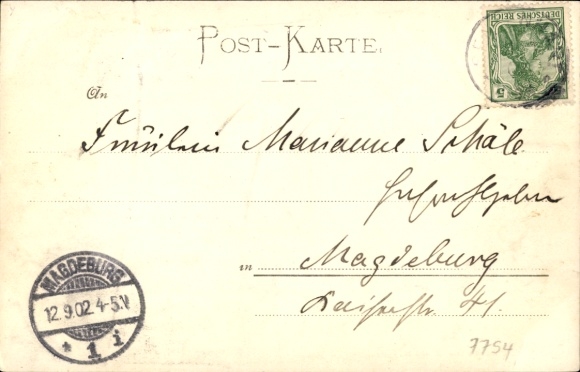 POST-KARTE
DEUTSCHES REICH
5
An
Fräulein Marianne Schäle
in Magdeburg
Kaiserstr. 41.
MAGDEBURG
12.9.02 4-5.N
* 1 i
7754